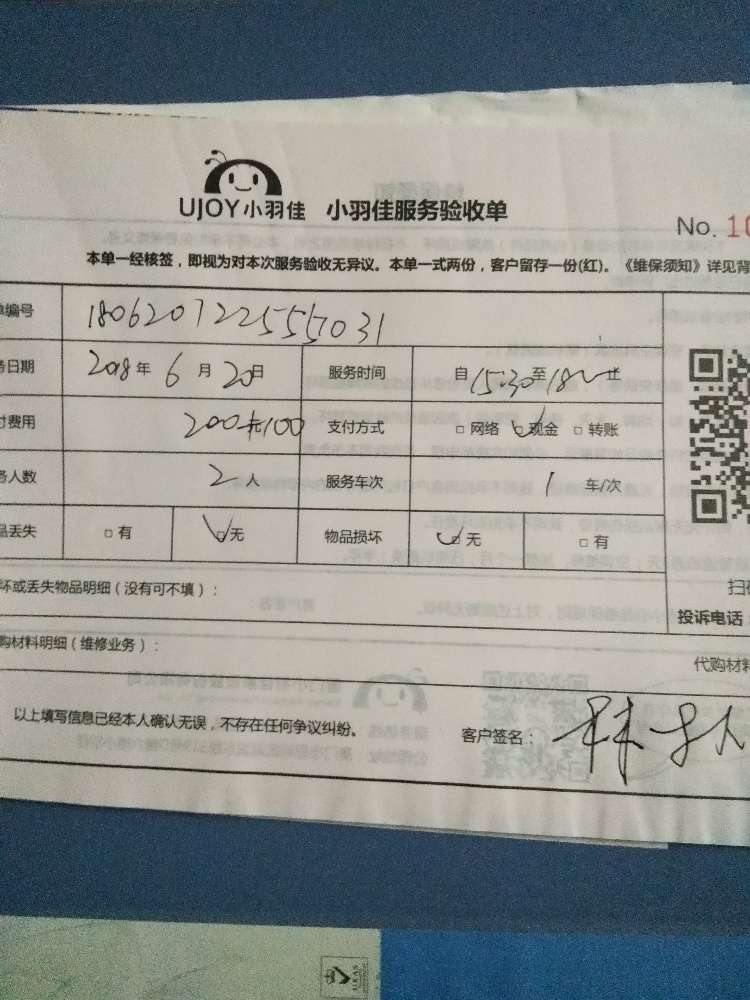 UJOY小羽佳 小羽佳服务验收单
No. 10
本单一经核签，即视为对本次服务验收无异议。本单一式两份，客户留存一份(红)。《维保须知》详见背
编号 180620122555031
日期 2018年 6 月 20日 服务时间 自 15:30 至 18
费用 200+100 支付方式 □ 网络 □ 现金 □ 转账
人数 2 人 服务车次 1 车/次
丢失 □ 有 □ 无 物品损坏 □ 无 □ 有
坏或丢失物品明细（没有可不填）：
扫
投诉电话：
购材料明细（维修业务）：
代购材料
以上填写信息已经本人确认无误，不存在任何争议纠纷。
客户签名：